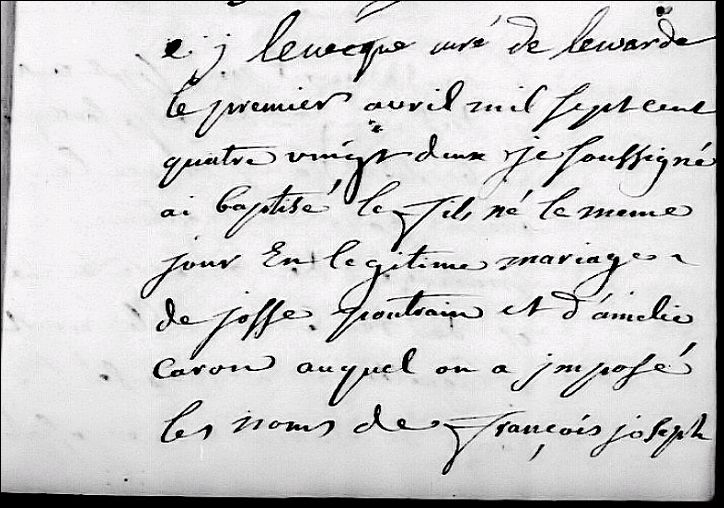 e j levecque curé de lewarde
le premier avril mil sept cent
quatre vingt deux je soussigné
ai baptisé le fils né le meme
jour En legitime mariage
de josse poutrain et d'amelie
caron auquel on a jmposé
les noms de françois joseph